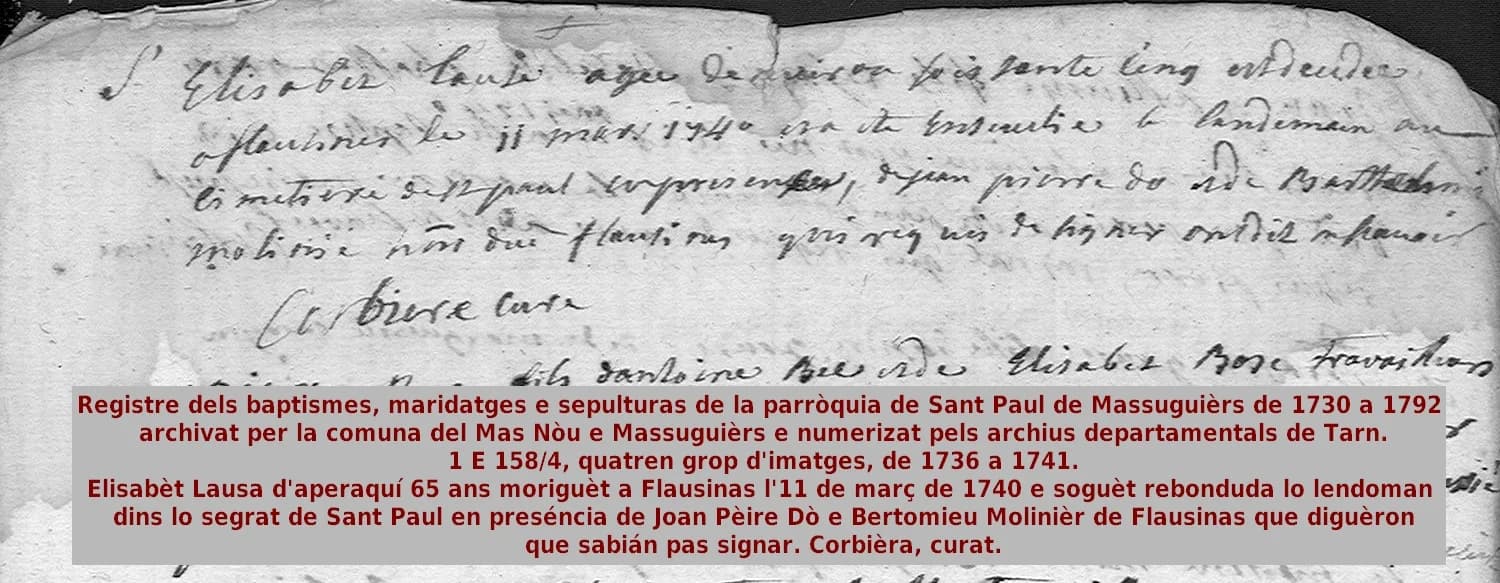 St Elisabet lause agee denviron soissante cinq est decedee
a flausines le 11 mars 1740 et a ete Ensevelie le landemain au
cimetiere de st paul en presence, de jean pierre do et de Barthelemi
molinié du flausines qui requis de signer ont dit ne scavoir
Corbiere cure
fils dantoine Bee et de Elisabet Bosc travailleurs
Registre dels baptismes, maridatges e sepulturas de la parròquia de Sant Paul de Massuguièrs de 1730 a 1792
archivat per la comuna del Mas Nòu e Massuguièrs e numerizat pels archius departamentals de Tarn.
1 E 158/4, quatren grop d'imatges, de 1736 a 1741.
Elisabèt Lausa d'aperaquí 65 ans moriguèt a Flausinas l'11 de març de 1740 e soguèt rebonduda lo lendoman
dins lo segrat de Sant Paul en preséncia de Joan Pèire Dò e Bertomieu Molinièr de Flausinas que diguèron
que sabián pas signar. Corbièra, curat.